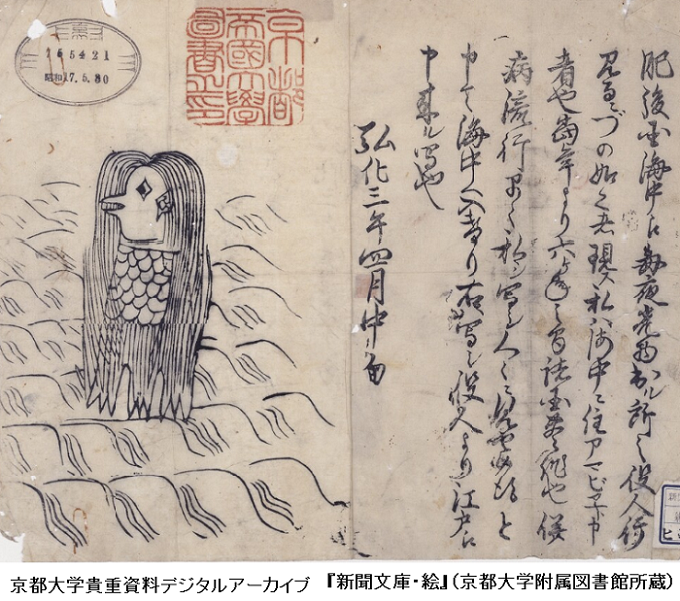 肥後国海中え毎夜光物出ル所之役人行
見るニづの如く者現ス私ハ海中ニ住アマビヱト申
者也當年より六ヶ年之間諸国豊作也併
病流行早々私シ写シ人々ニ見せ候得と
申て海中へ入けり右写シ役人より江戸え
申来ル写也
弘化三年四月中旬
京都
帝國大學
圖書之印
昭和17.5.30
京都大学貴重資料デジタルアーカイブ 『新聞文庫・絵』(京都大学附属図書館所蔵)